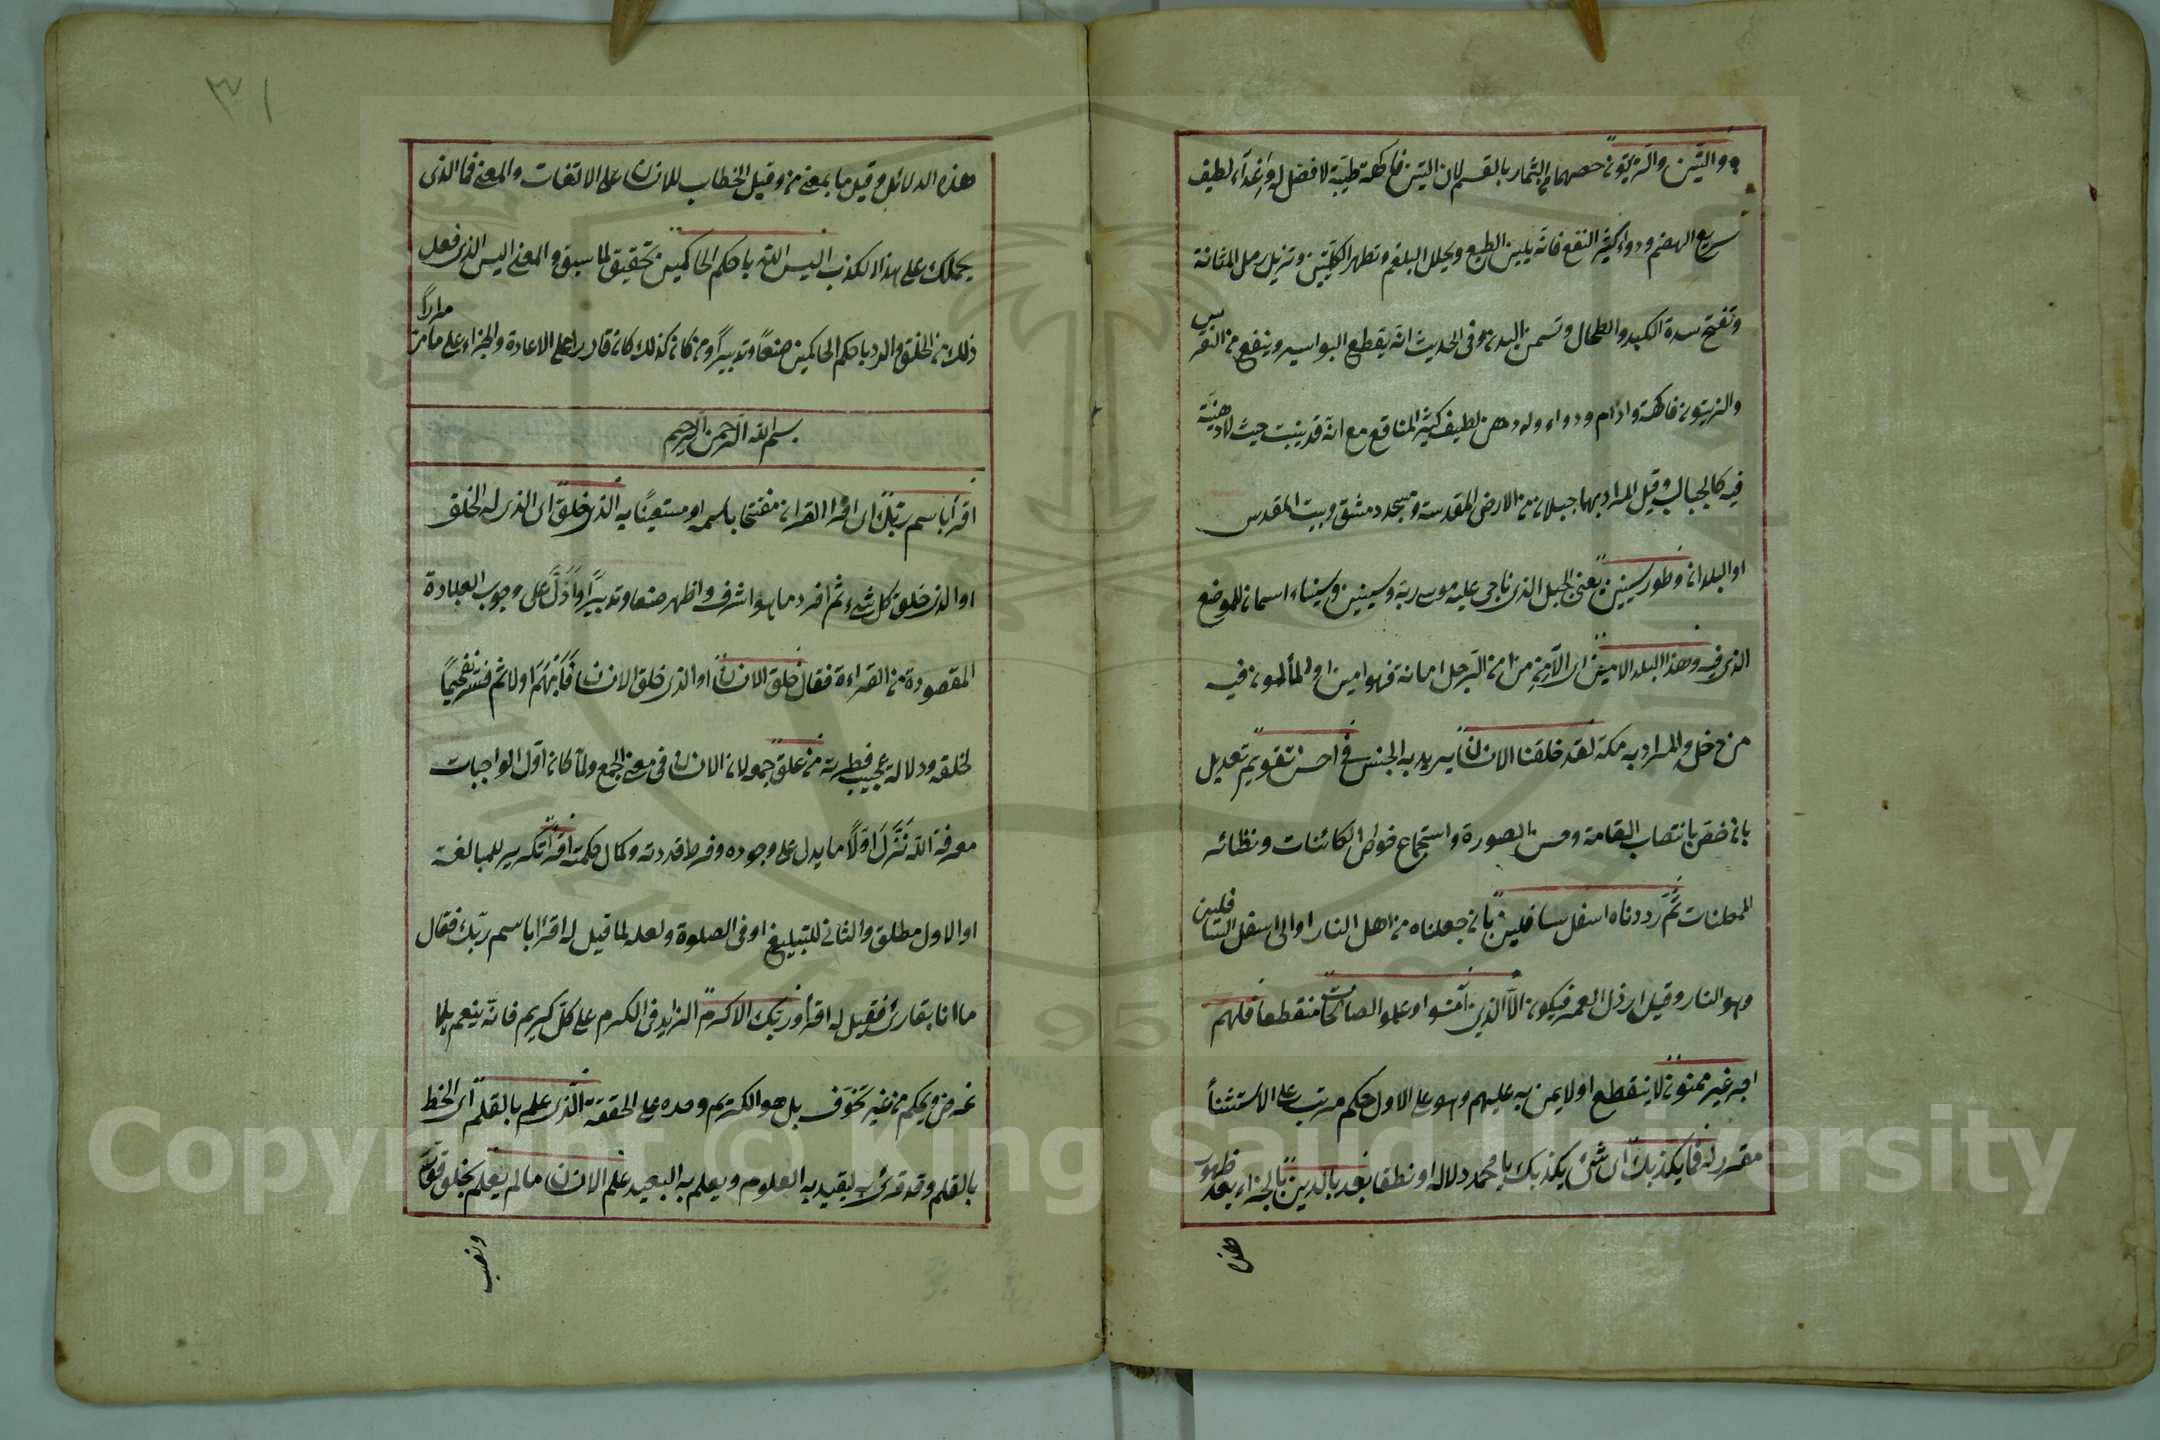 والتين والزيتون خصهما من الثمار بالقسم لان التين فاكهة طيبة لا فضل له وغذاء لطيف
سريع الهضم ودواء كثير النفع فانه يلين الطبع ويحلل البلغم وتطهر الكليتين وتزيل رمل المثانة
وتفتح سدة الكبد والطحال وتسمن البدن وفى الحديث انه يقطع البواسير وينفع من النقرس
والزيتون فاكهة وادام ودواء وله دهن لطيف كثير المنافع مع انه قد ينبت حيث لا دهنية
فيه كالجبال وقيل المراد بهما جبلان من الارض المقدسة ومسجد دمشق وبيت المقدس
او البلدان وطور سينين يعنى الجبل الذى ناجى عليه موسى ربه وسينين وسيناء اسمان للموضع
الذى فيه وهذا البلد الامين اى الآمن من امن الرجل امانة فهو امين او المأمون فيه
من دخل والمراد به مكة لقد خلقنا الانسان يريد به الجنس فى احسن تقويم تعديل
بان خص بانتصاب القامة وحسن الصورة واستجماع خواص الكائنات ونظائر
الممكنات ثم رددناه اسفل سافلين بان جعلناه من اهل النار او الى اسفل السافلين
وهو النار وقيل ارذل العمر فيكون الا الذين آمنوا وعملوا الصالحات منقطعا فلهم
اجر غير ممنون لا ينقطع او لا يمن به عليهم وهو على الاول حكم مرتب على الاستثناء
مقرر له فما يكذبك اى شئ يكذبك يا محمد دلالة او نطقا بعد بالدين بالجزاء بعد ظهور
هذه
٣١
هذه الدلائل وقيل ما بمعنى من وقيل الخطاب للانسان على الالتفات والمعنى فما الذى
يحملك على هذا الكذب اليس الله باحكم الحاكمين تحقيق لما سبق والمعنى اليس الذى فعل
ذلك من الخلق والرد باحكم الحاكمين صنعا وتدبيرا ومن كان كذلك كان قادرا على الاعادة والجزاء على ما مر مرارا
بسم الله الرحمن الرحيم
اقرأ باسم ربك اى اقرا القران مفتتحا باسمه او مستعينا به الذى خلق اى الذى له الخلق
او الذى خلق كل شئ ثم افرد ما هو اشرف واظهر صنعا وتدبيرا وادل على وجوب العبادة
المقصودة من القراءة فقال خلق الانسان او الذى خلق الانسان فابهم اولا ثم فسر تفخيما
لخلقه ودلالة عجيب فطرته من علق جمع لان الانسان فى معنى الجمع ولما كان اول الواجبات
معرفة الله نزل اولا ما يدل على وجوده وفرط قدرته وكمال حكمته اقرأ تكرير للمبالغة
او الاول مطلق والثانى للتبليغ او فى الصلوة ولعله لما قيل له اقرا باسم ربك فقال
ما انا بقارئ فقيل له اقرا وربك الاكرم الزايد فى الكرم على كل كريم فانه ينعم بلا
غرض ويحكم من غير تخوف بل هو الكريم وحده على الحقيقة الذى علم بالقلم اى الخط
بالقلم وقد قرئ به ليقيد به العلوم ويعلم به البعيد علم الانسان ما لم يعلم بخلق قواه
ونصب
Copyright © King Saud University
1957